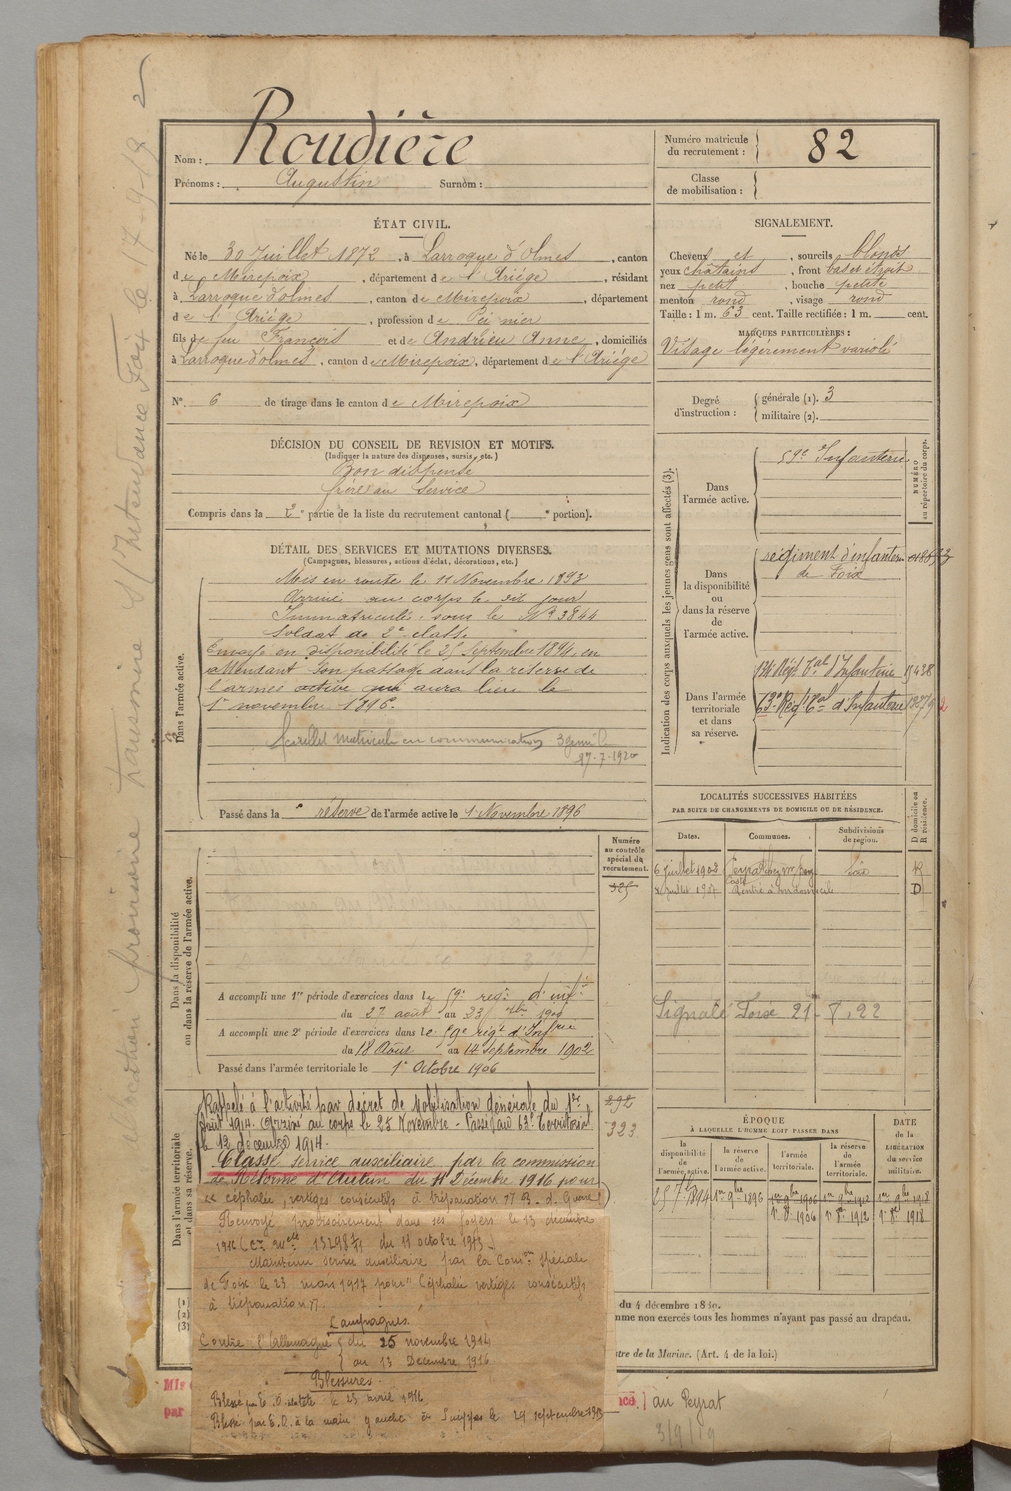 2
allocation provisoire transmise s/Intendance Foix le 17-9-19
Nom : Roudière
Prénoms : Augustin Surnom :
Numéro matricule du recrutement : 82
Classe de mobilisation :
ÉTAT CIVIL.
Né le 30 Juillet 1872, à Larroque d'Olmes, canton
de Mirepoix, département de l'Ariége, résidant
à Larroque d'olmes, canton de Mirepoix, département
de l'Ariége, profession de Peignier
fils de feu François et de Andrieu Anne, domiciliés
à Larroque d'olmes, canton de Mirepoix, département de l'Ariége
N° 6 de tirage dans le canton de Mirepoix
SIGNALEMENT.
Cheveux et, sourcils blonds
yeux châtains, front bas et étroit
nez petit, bouche petite
menton rond, visage rond
Taille : 1 m. 63 cent. Taille rectifiée : 1 m. cent.
MARQUES PARTICULIÈRES :
Visage légèrement variolé
Degré d'instruction : générale (1). 3
militaire (2).
DÉCISION DU CONSEIL DE REVISION ET MOTIFS.
(Indiquer la nature des dispenses, sursis, etc.)
Bon dispensé
frère au service
Compris dans la 2e partie de la liste du recrutement cantonal ( e portion).
DÉTAIL DES SERVICES ET MUTATIONS DIVERSES.
(Campagnes, blessures, actions d'éclat, décorations, etc.)
Dans l'armée active.
Mis en route le 11 Novembre 1893
Arrivé au corps le dit jour
Immatriculé sous le N° 3844
Soldat de 2e classe
Envoyé en disponibilité le 25 Septembre 1894, en
attendant son passage dans la réserve de
l'armée active qui aura lieu le
1er novembre 1896.
feuillet matricule en communication
17-7-1920
Passé dans la réserve de l'armée active le 1er Novembre 1896
Indication des corps auxquels les jeunes gens sont affectés (3).
NUMÉRO au répertoire du corps.
Dans l'armée active.
59e Infanterie
Dans la disponibilité ou dans la réserve de l'armée active.
régiment d'infanterie
de Foix
Dans l'armée territoriale et dans sa réserve.
134 Régt Tal d'Infanterie
63e Régt Tal d'Infanterie
LOCALITÉS SUCCESSIVES HABITÉES
PAR SUITE DE CHANGEMENTS DE DOMICILE OU DE RÉSIDENCE.
Dates. Communes. Subdivisions de région. D domicile ou R résidence.
6 juillet 1902 Peyrat Foix R
juillet 1907 Rentré à son domicile D
Signalé Foix 21-8-22
Dans la disponibilité ou dans la réserve de l'armée active.
Numéro au contrôle spécial du recrutement.
A accompli une 1re période d'exercices dans le 59e régt d'inf
du 27 août au 23 7bre 1900
A accompli une 2e période d'exercices dans le 59e régt d'Infrie
du 18 Août au 14 Septembre 1902
Passé dans l'armée territoriale le 1er Octobre 1906
Dans l'armée territoriale et dans sa réserve.
Rappelé à l'activité par décret de Mobilisation générale du 1er
Août 1914. Arrivé au corps le 25 Novembre - Passé au 63e Territorial
le 12 décembre 1914.
292
323
Classé service auxiliaire par la commission
de Réforme d'Autun du 11 Décembre 1916 pour
"céphalée, vertiges consécutifs à trépanation"
Renvoyé provisoirement dans ses foyers le 13 décembre
1916 (Cre Melle 13298 du 11 octobre 1915)
Maintenu service auxiliaire par la Comon spéciale
de Foix le 23 mars 1917 pour "Céphalée vertiges consécutifs
à trépanation".
Campagnes
Contre l'Allemagne du 25 novembre 1914
au 13 Décembre 1916
Blessures.
Blessé par E. O. tête le 25 avril 1916
Blessé par E. O. à la main gauche à Suippes le 29 septembre 1915
ÉPOQUE
À LAQUELLE L'HOMME DOIT PASSER DANS
la disponibilité de l'armée active. la réserve de l'armée active. l'armée territoriale. la réserve de l'armée territoriale.
DATE de la LIBÉRATION du service militaire.
25 7bre 1894 1er 9bre 1896 1er 9bre 1906 1er 9bre 1912 1er 9bre 1918
1er 8bre 1906 1er 8bre 1912 1er 8bre 1918
(1)
(2)
(3)
du 4 décembre 1830.
mme non exercés tous les hommes n'ayant pas passé au drapeau.
ntre de la Marine. (Art. 4 de la loi.)
par
au Peyrat
3/9/19